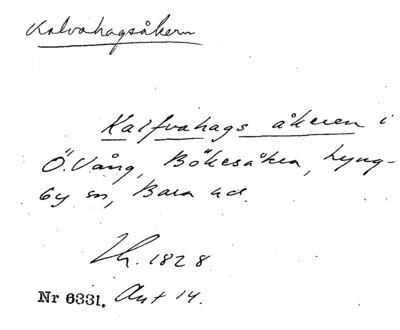 Kalvahagsåkern
Kalfvahags åkeren i
Ö. Vång, Bökesåkra, Lyng-
by sn, Bara hd.
Lh. 1828
Nr 6331. Akt 14.